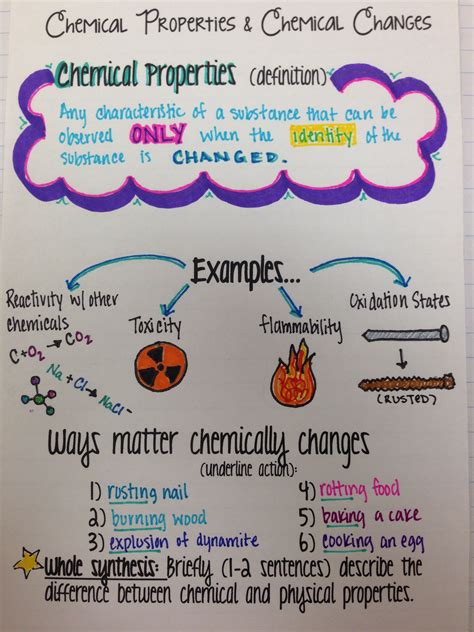 Chemical Properties & Chemical Changes
Chemical Properties (definition)
Any characteristic of a substance that can be
observed ONLY when the identity of the
substance is CHANGED.
Examples...
Reactivity w/ other
chemicals
C+O2 → CO2
Na + Cl → NaCl
Toxicity
flammability
Oxidation States
(RUSTED)
Ways matter chemically changes
(underline action):
1) rusting nail
2) burning wood
3) explosion of dynamite
4) rotting food
5) baking a cake
6) cooking an egg
Whole synthesis: Briefly (1-2 sentences) describe the
difference between chemical and physical properties.